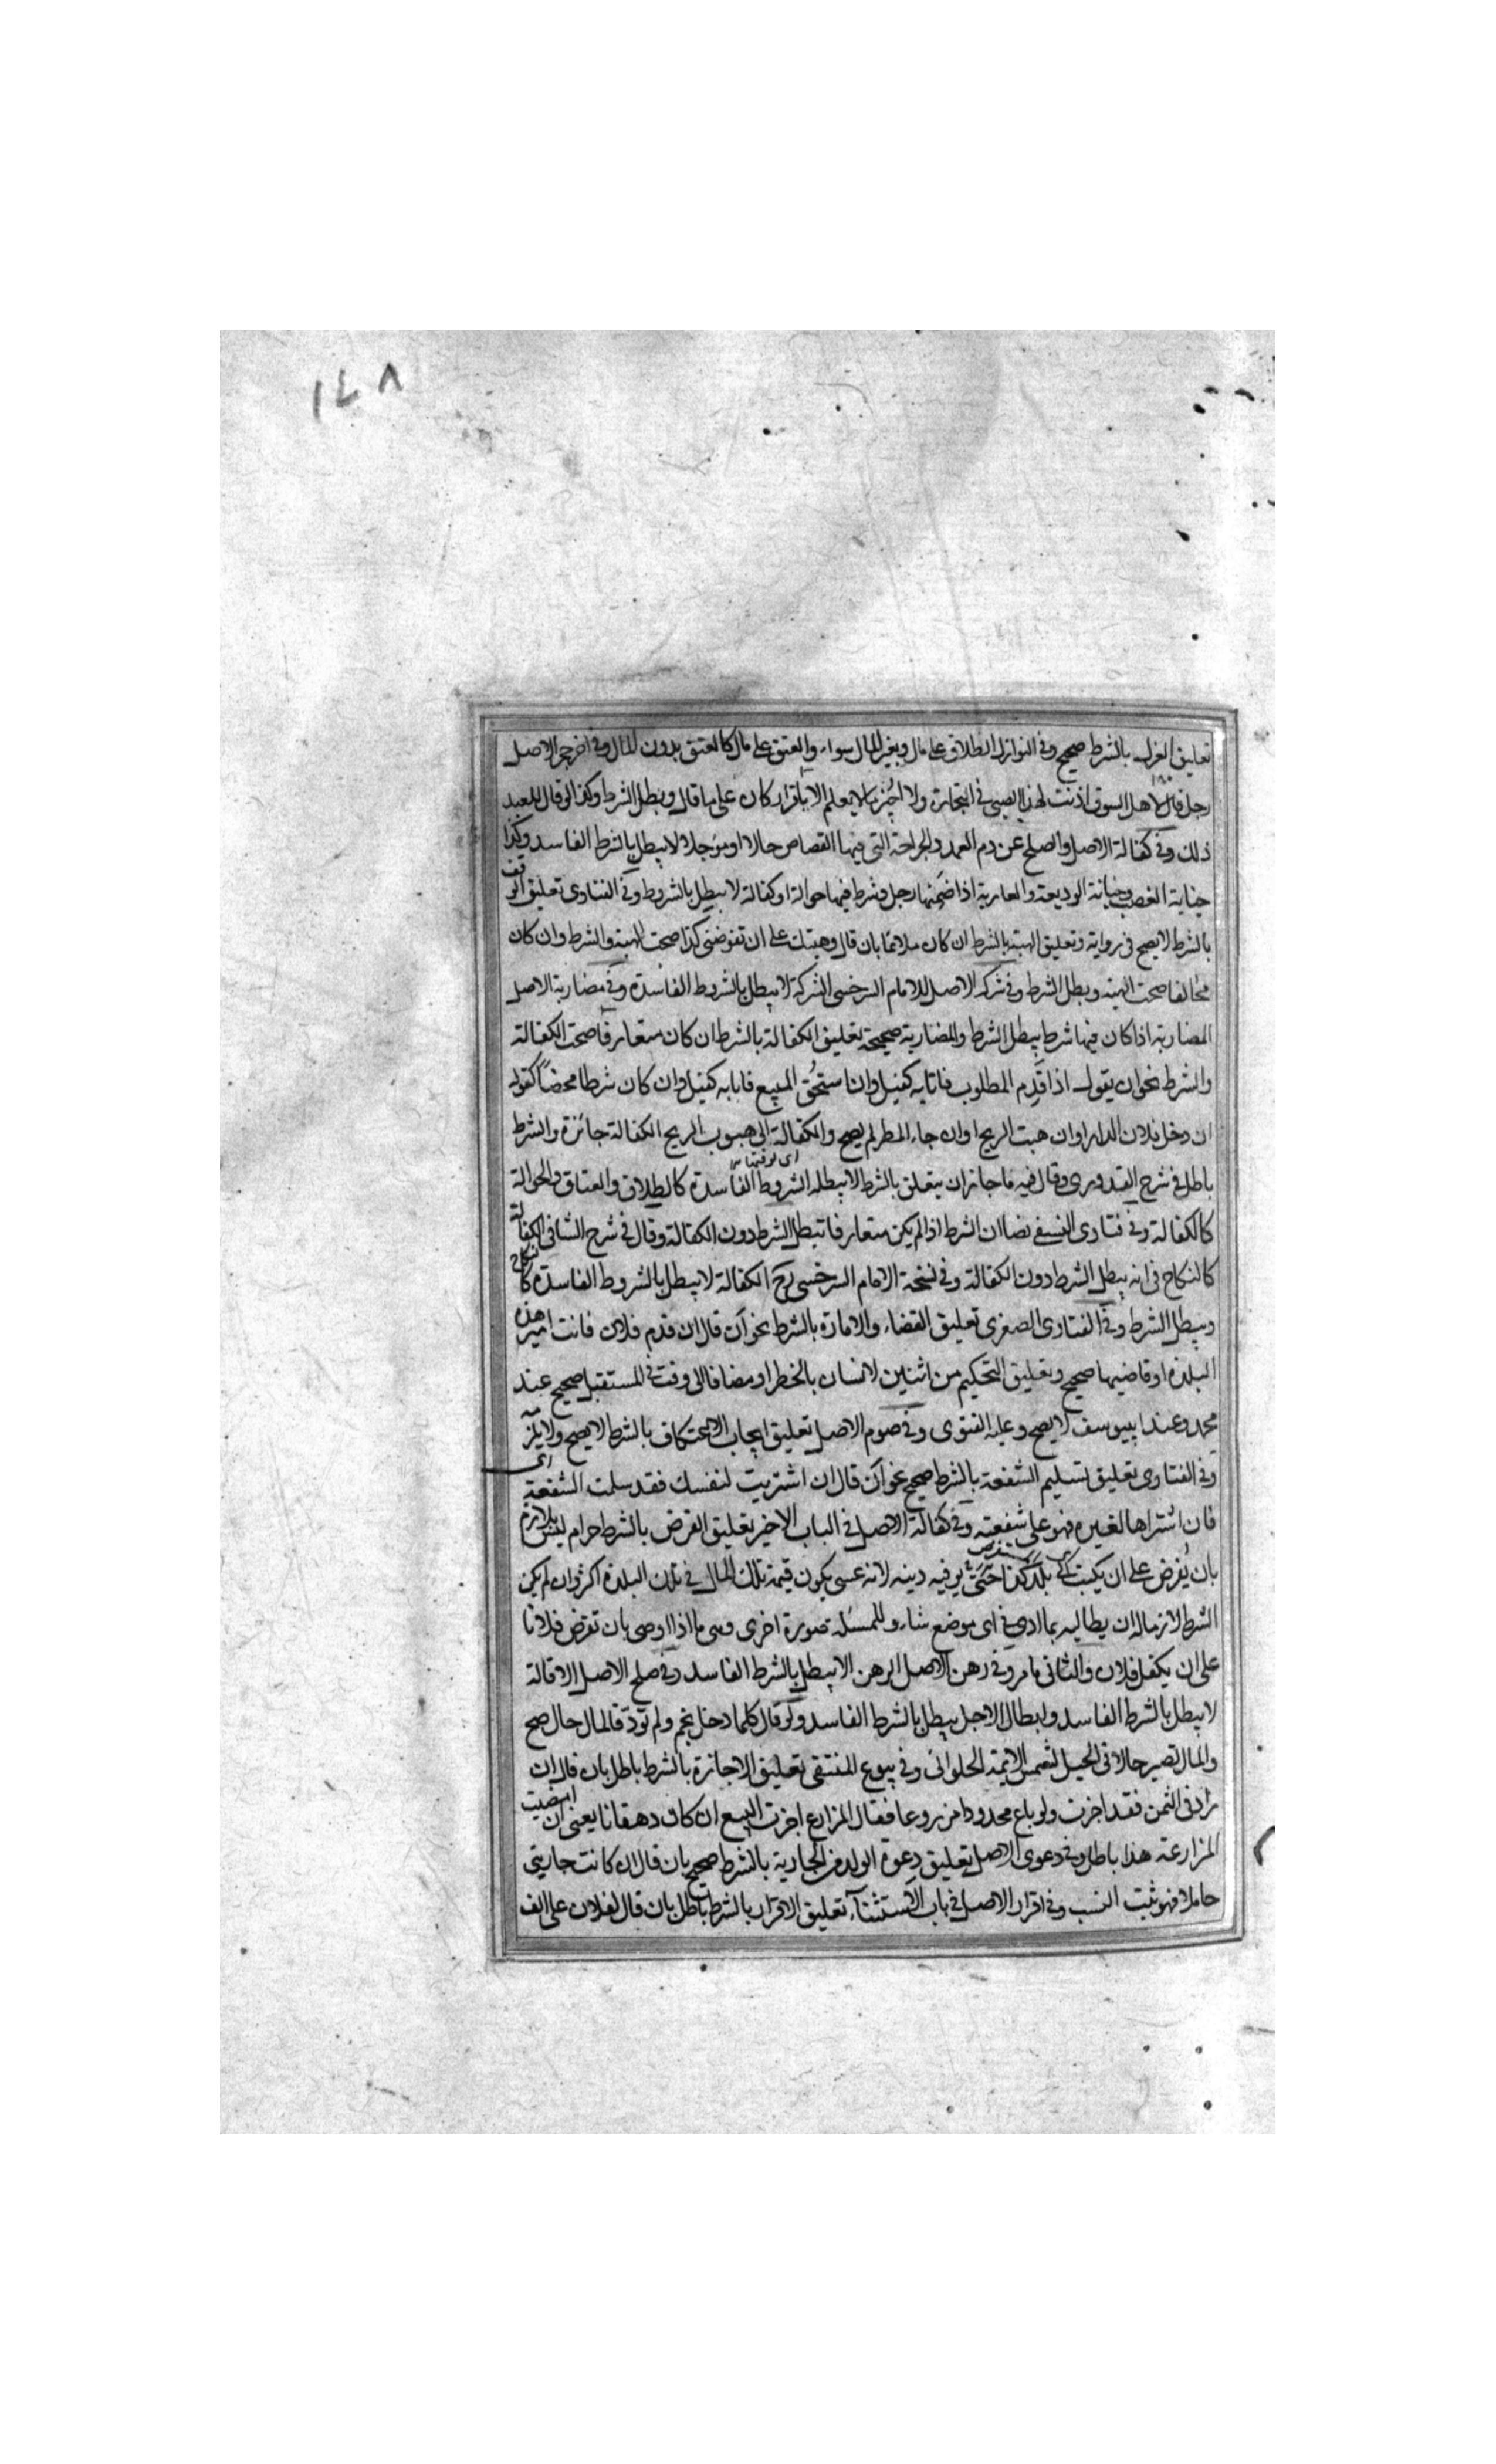 ١٤٨
تعليق العزل بالشرط صحيح وفى النوازل الطلاق على مال وبغير المال سواء والعتق على مال كالعتق بدون المال وفى اخر حجر الاصل
رجل قال لاهل السوق اذنت لهذا الصبى فى التجارة ولا اجيز ما لا يعلم الا باقرار كان على ما قال وبطل الشرط وكذا لو قال للعبد
ذلك وفى كفالة الاصل والصلح عن دم العمد والجراحة التى فيها القصاص حالا او مؤجلا لا يبطل بالشرط الفاسد وكذا
جناية الغصب وجناية الوديعة والعارية اذا ضمنها رجل وشرط فيها حوالة او كفالة لا يبطل بالشروط وفى الفتاوى تعليق الوقف
بالشرط لا يصح فى رواية وتعليق الهبة بالشرط ان كان ملائما بان قال وهبتك على ان تعوضنى كذا صحت الهبة والشرط وان كان
مخالفا صحت الهبة وبطل الشرط وفى شركة الاصل للامام السرخسى الشركة لا يبطل بالشروط الفاسدة وفى مضاربة الاصل
المضاربة اذا كان فيها شرط يبطل الشرط والمضاربة صحيحة تعليق الكفالة بالشرط ان كان متعارفا صحت الكفالة
والشرط نحو ان يقول اذا قدم المطلوب فانا به كفيل وان استحق المبيع فانا به كفيل وان كان شرطا محضا كقوله
ان دخل فلان الدار او ان هبت الريح او ان جاء المطر لم يصح والكفالة الى هبوب الريح الكفالة جائزة والشرط
اى توقيتها
باطل فى شرح القدورى وقال فيه ما جاز ان يتعلق بالشرط لا يبطله الشروط الفاسدة كالطلاق والعتاق والحوالة
كالكفالة وفى فتاوى النسفى نصا ان الشرط اذا لم يكن متعارفا تبطل الشرط دون الكفالة وقال فى شرح الشافى الكفالة
كالنكاح فى انه يبطل الشرط دون الكفالة وفى نسخة الامام السرخسى رح الكفالة لا يبطل بالشروط الفاسدة كالنكاح
ويبطل الشرط وفى الفتاوى الصغرى تعليق القضاء والامارة بالشرط نحو ان قال ان قدم فلان فانت امير هذه
البلدة او قاضيها صحيح وتعليق التحكيم من اثنين لانسان بالخطر او مضافا الى وقت فى المستقبل صحيح عند
محمد وعند ابى يوسف لا يصح وعليه الفتوى وفى صوم الاصل تعليق ايجاب الاعتكاف بالشرط لا يصح ولا يلزم
وفى الفتاوى تعليق تسليم الشفعة بالشرط صحيح نحو ان قال ان اشتريت لنفسك فقد سلمت الشفعة
فان اشتراها لغيره فهو على شفعته وفى كفالة الاصل فى الباب الاخير تعليق القرض بالشرط حرام ليس بلازم
بان يقرض على ان يكتب الى بلد كذا حتى يوفيه دينه لانه عسى يكون قيمة تلك المال فى تلك البلدة اكثر وان لم يكن
الشرط لازما له ان يطالبه بما ادى فى اى موضع شاء وللمسئلة صورة اخرى وهى ما اذا اوصى بان تقرض فلانا
على ان يكفل فلان والثانى ما مر وفى رهن الاصل الرهن لا يبطل بالشرط الفاسد وفى صلح الاصل الاقالة
لا يبطل بالشرط الفاسد وابطال الاجل يبطل بالشرط الفاسد ولو قال كلما دخل نجم ولم تؤد فالمال حال صح
والمال تصير حالا فى الحيل لشمس الايمة الحلوانى وفى بيوع المنتقى تعليق الاجازة بالشرط باطل بان قال ان
زاد فى الثمن فقد اجزت ولو باع محدودا مزروعا فقال المزارع اجزت البيع ان كان دهقانا يعنى ان امضيت
المزارعة هذا باطل وفى دعوى الاصل تعليق دعوة الولد من الجارية بالشرط صحيح بان قال ان كانت جاريتى
حاملا فهو ثبت النسب وفى اقرار الاصل فى باب الاستثناء تعليق الاقرار بالشرط باطل بان قال لفلان على الف